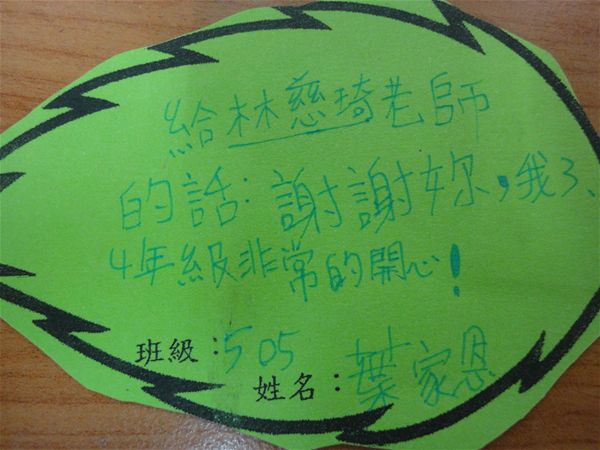 給林慈琦老師
的話：謝謝妳，我3、
4年級非常的開心！
班級：505
姓名：葉家恩